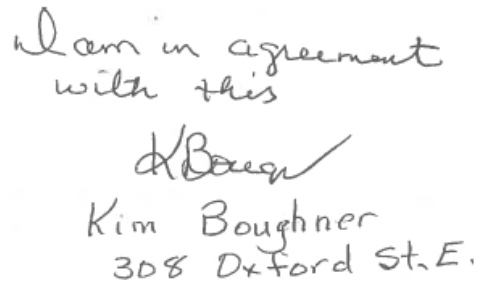 I am in agreement
with this
KBoug
Kim Boughner
308 Oxford St. E.